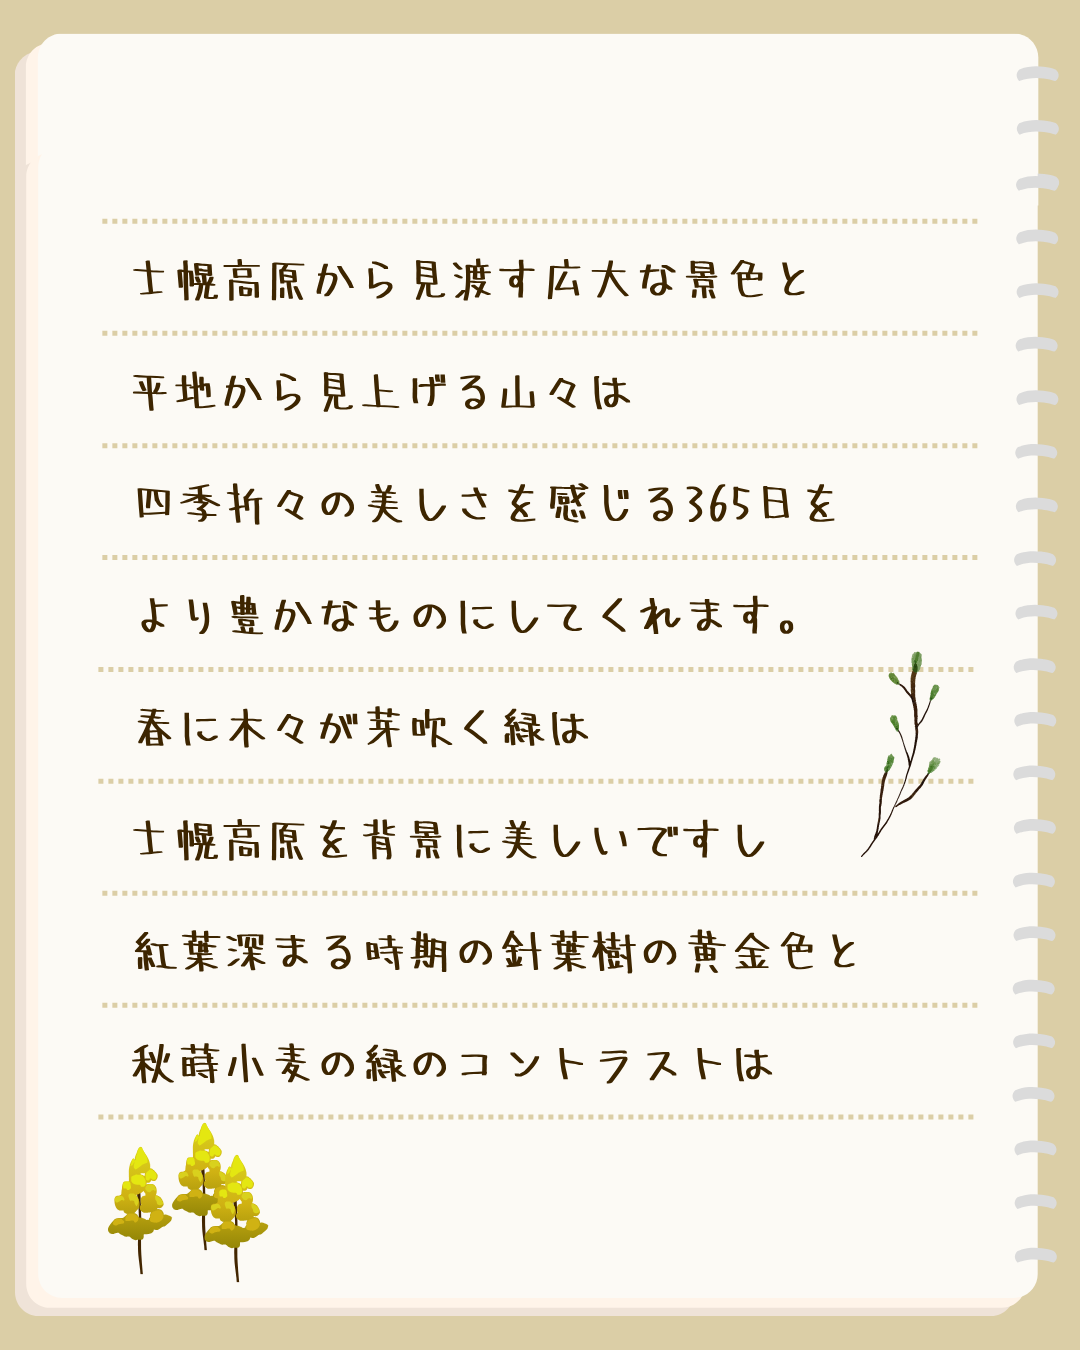 士幌高原から見渡す広大な景色と
平地から見上げる山々は
四季折々の美しさを感じる365日を
より豊かなものにしてくれます。
春に木々が芽吹く緑は
士幌高原を背景に美しいですし
紅葉深まる時期の針葉樹の黄金色と
秋蒔小麦の緑のコントラストは